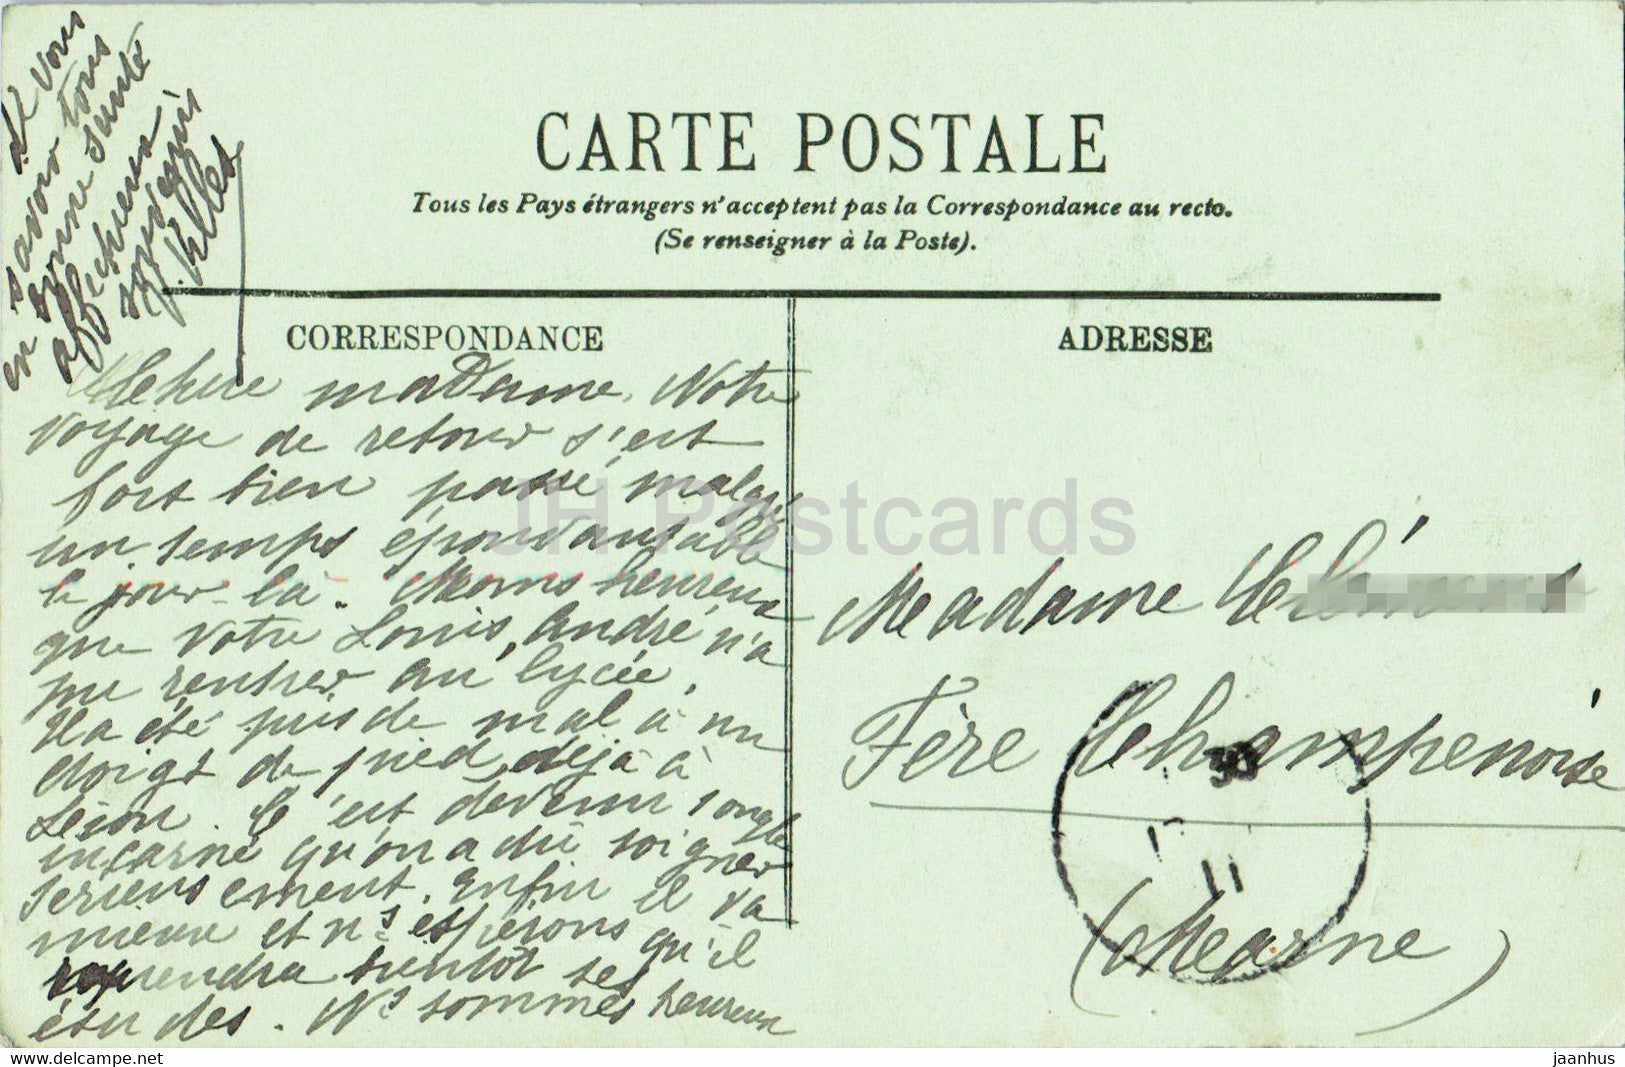 CARTE POSTALE
Tous les Pays étrangers n'acceptent pas la Correspondance au recto.
(Se renseigner à la Poste).
CORRESPONDANCE
Chère madame, Notre
voyage de retour s'est
fort bien passé, malgré
un temps épouvantable
ce jour-là. Moins heureux
que votre Louis, André n'a
pu rentrer au lycée,
Il a été pris de mal à un
doigt de pied, déjà à
C'est devenu l'ongle
incarné qu'on a dû soigner
serieusement. Enfin il va
mieux et ns espérons qu'il
reprendra bientôt ses
études. Ns sommes heureux
de vous
savoir tous
en bonne santé
affectueux
souvenirs
ADRESSE
Madame
Fère Champenoise
(Marne)
11
JH Postcards
delcampe.net
jaanhus